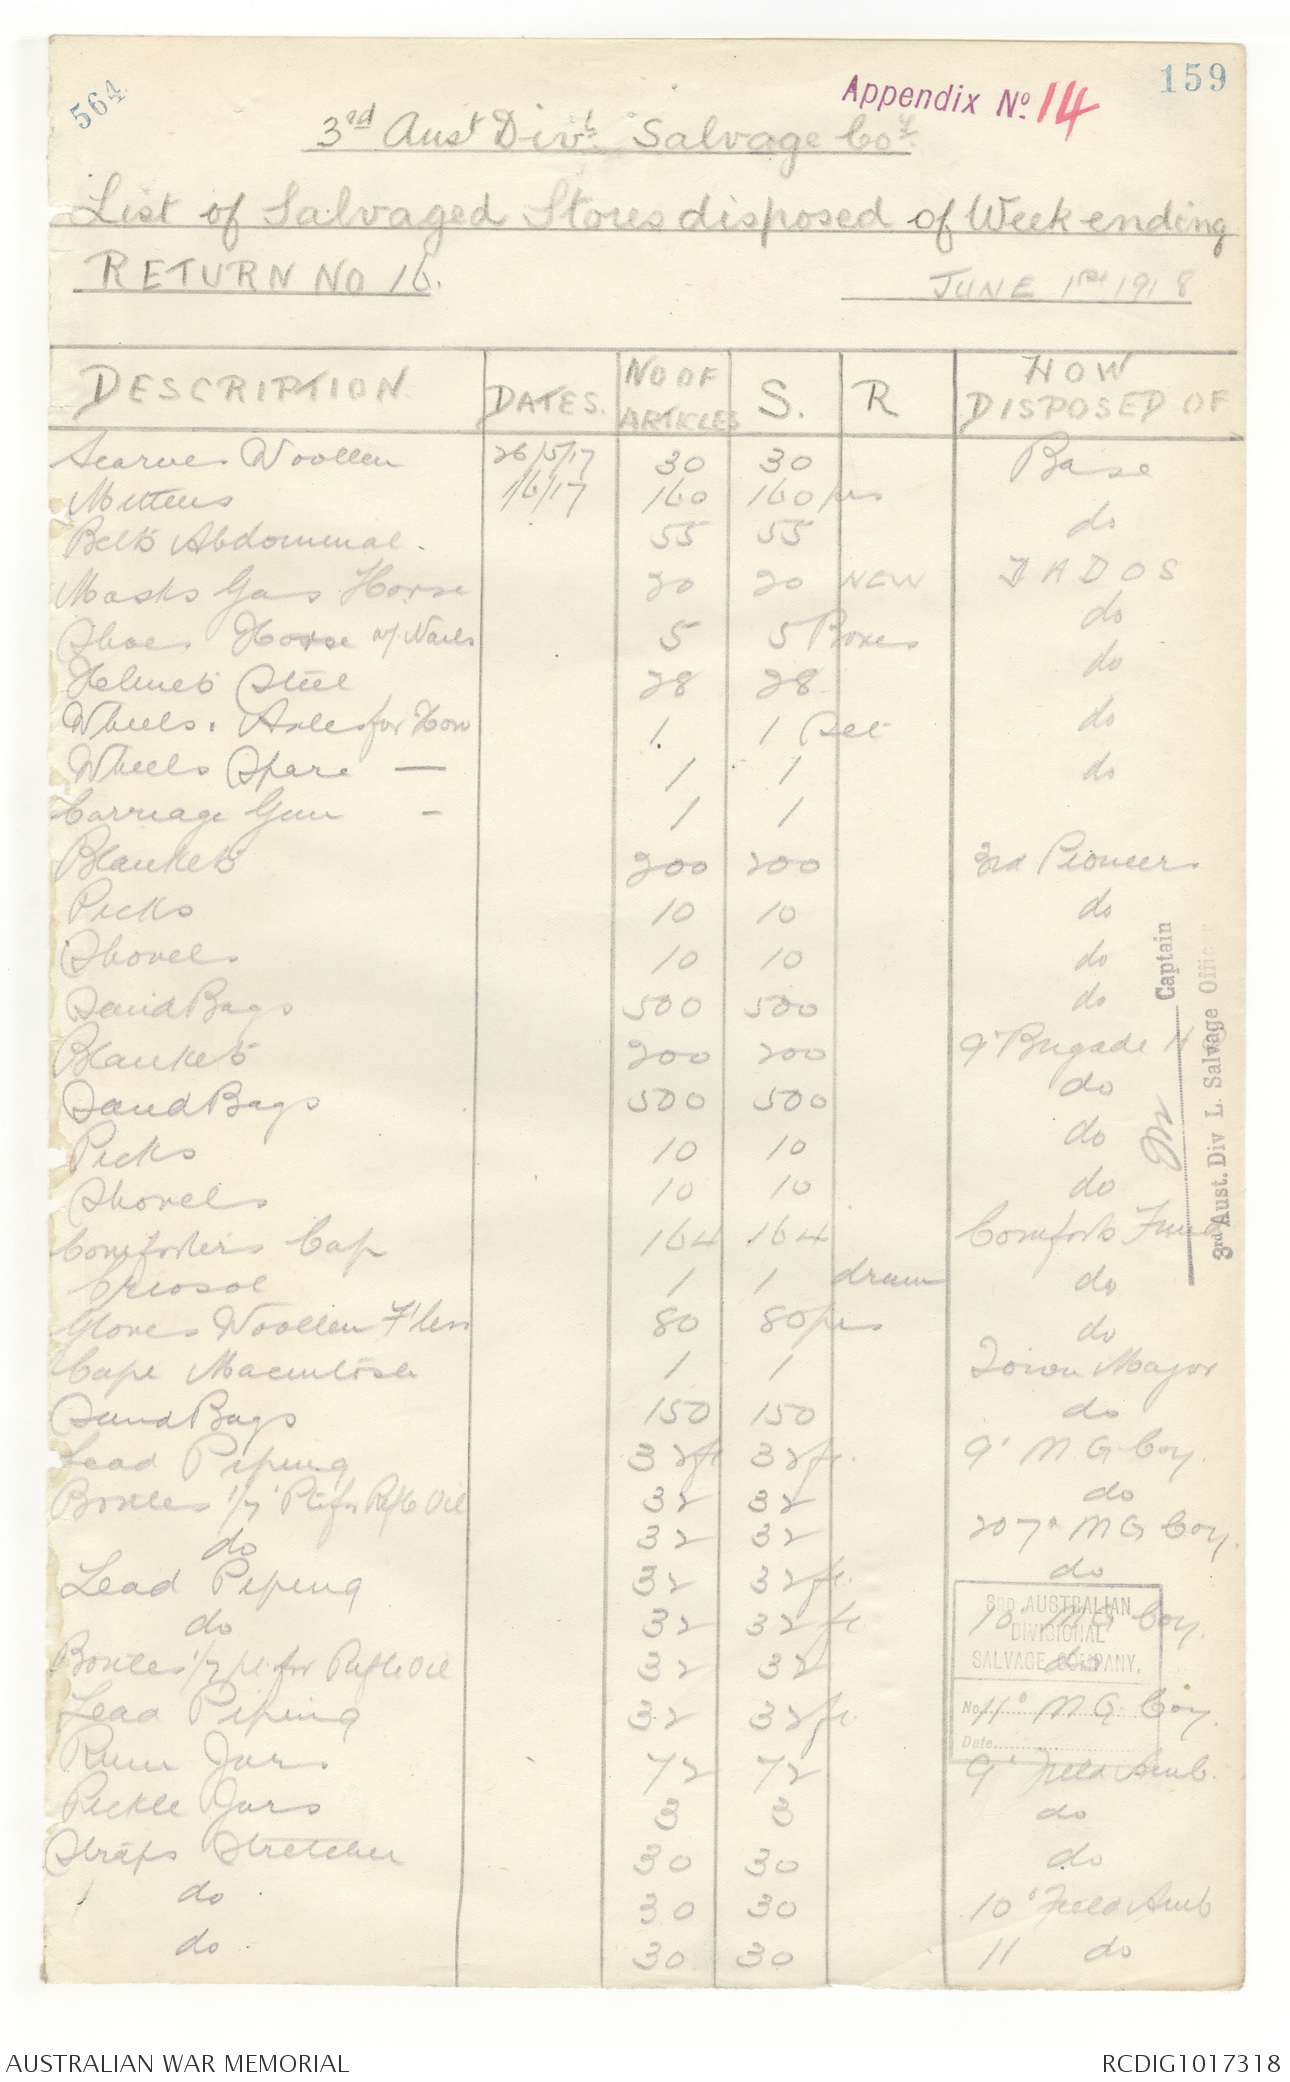 564
159
Appendix No. 14
3rd Aust Divl. Salvage Coy.
List of Salvaged Stores disposed of Week ending
RETURN NO 16. JUNE 1st 1918
DESCRIPTION DATES. NO OF ARTICLES S. R HOW DISPOSED OF
Scarves Woollen 26/5/17 30 30 Base
Mittens 1/6/17 160 160 prs
Belts Abdominal. 55 55 do
Masks Gas Horse 20 20 NEW DADOS
Shoes Horse w/ Nails 5 5 Boxes do
Helmets Steel 28 28 do
Wheels. Axles for How 1 1 Set do
Wheels Spare — 1 1 do
Carriage Gun - 1 1
Blankets 200 200 3rd Pioneers
Picks 10 10 do
Shovels 10 10 do
Sand Bags 500 500 do
Blankets 200 200 9' Brigade H
Sand Bags 500 500 do
Picks 10 10 do
Shovels 10 10 do
Comforters Cap 164 164 Comforts Fund
Creosol 1 1 drum do
Gloves Woollen F'less 80 80 prs do
Cape Macintosh 1 1 Town Major
Sand Bags 150 150 do
Lead Piping 32 ft 32 ft. 9' M G Coy.
Bottles 1/2 Pt for Rifle Oil 32 32 do
do 32 32 207th M G Coy.
Lead Piping 32 32 ft. do
do 32 32 ft 10' M G Coy.
Bottles 1/2 pt. for Rifle Oil 32 32 do
Lead Piping 32 32 ft. 11' M G Coy.
Rum Jars 72 72 9' Field Amb.
Pickle Jars 3 3 do
Straps Stretcher 30 30 do
do 30 30 10' Field Amb
do 30 30 11 do
Captain
3rd Aust. Div L. Salvage Officer
3RD AUSTRALIAN
DIVISIONAL
SALVAGE COMPANY.
No.
Date.
AUSTRALIAN WAR MEMORIAL RCDIG1017318